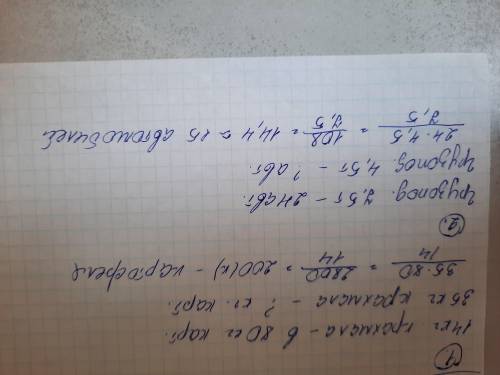 1.
14 кг крахмала - в 80 кг карт.
35 кг крахмала - ? кг. карт.
35·80/14 = 2800/14 = 200(кг) - картофеля
2.
Грузопод. 7,5т - 24 авт.
Грузопод. 4,5т - ? авт.
24·4,5/7,5 = 108/7,5 = 14,4 ≈ 15 автомобилей